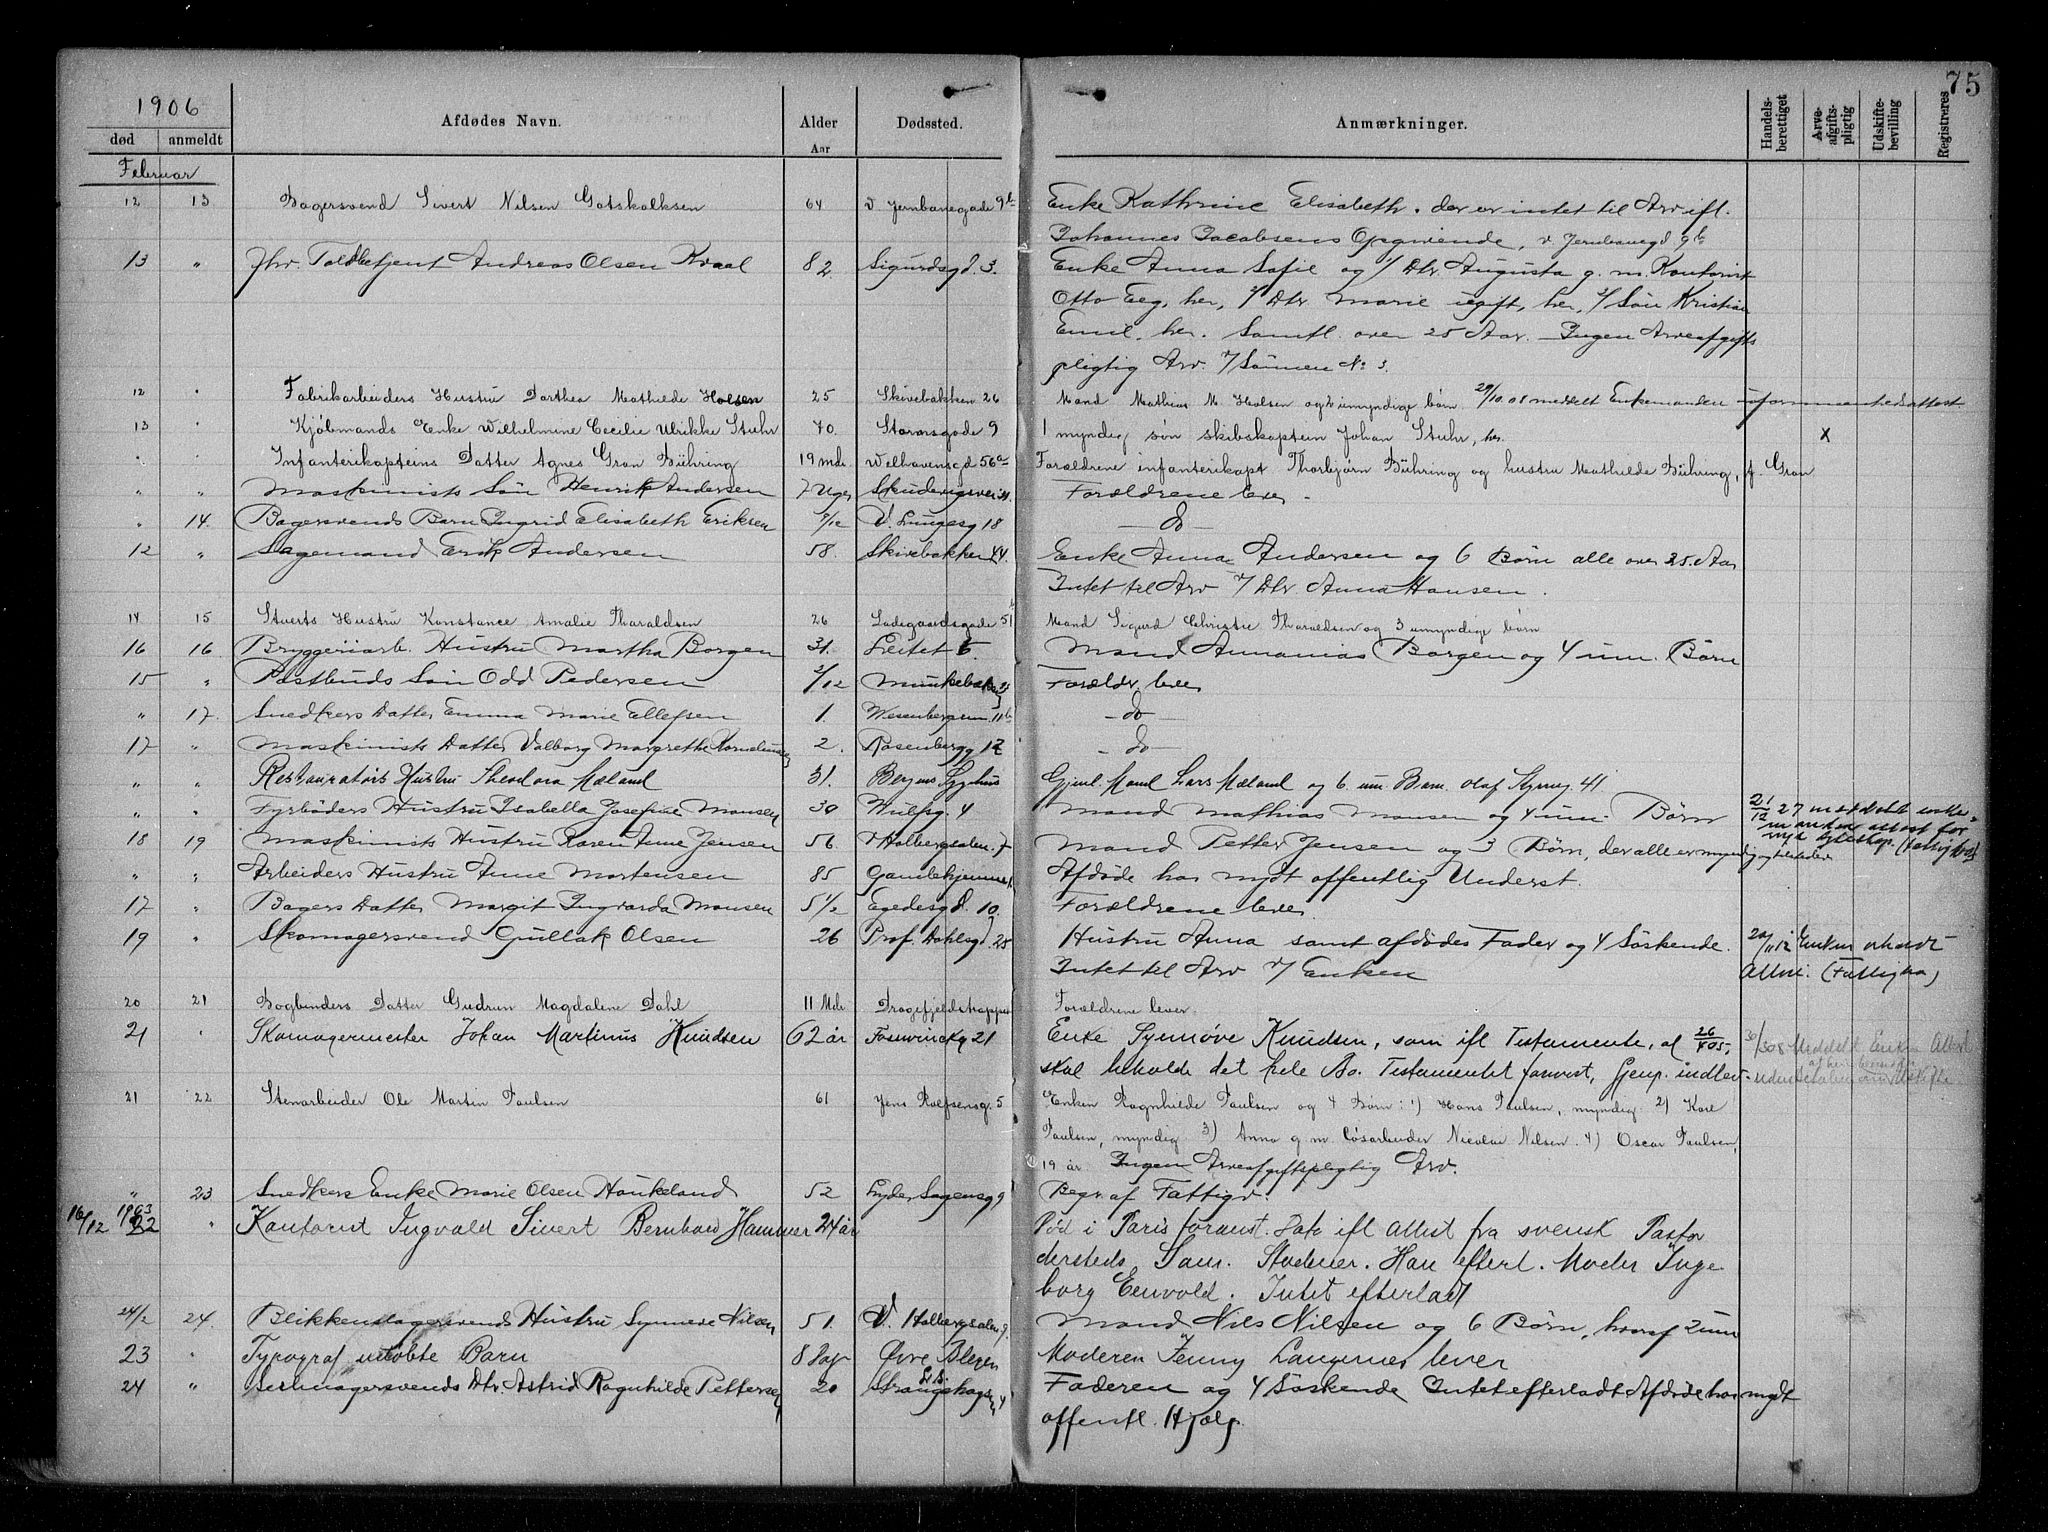 75
1906
død anmeldt Afdødes Navn. Alder Aar Dødssted. Anmærkninger. Handels-berettiget Arve-afgifts-pligtig Udskifte-bevilling Registreres
Februar
12 13 Bagersvend Sivert Nilsen Gotskalksen 64 v Jernbanegade 9b Enke Kathrine Elisabeth. der er intet til Arv ifl.
Johannes Jacobsens Opgivende, v. Jernbanegd 9b
13 " fhv. Toldbetjent Andreas Olsen Kvaal 82. Sigurdsgd. 3. Enke Anna Sofie og 1/ Dtr. Augusta g. m. Kontorist
Otto Eeg, her, 2/ Dtr Marie ugift, her, 3/ Søn Kristian
Emil, her. Samtl. over 25 Aar. Ingen Arveafgifts
pligtig Arv. v/ Sønnen No 3.
12 " Fabrikarbeiders Hustru Dorthea Mathilde Holsen 25 Skivebakken 26 Mand Mathias M. Holsen og 2 umyndige børn. 29/10.08 meddelt Enkemanden uformuenhedsattest
13 " Kjøbmands Enke Wilhelmine Cecilie Ulrikke Stuhr 70. Stormsgade 9 1 myndig søn skibskaptein Johan Stuhr, her. X
" " Infanterikapteins Datter Agnes Gran Bühring 19 mdr. Welhavensgd 56a Forældrene infanterikapt Thorbjørn Bühring og hustru Mathilde Bühring, f. Gran
" " Maskinists Søn Henrik Andersen 7 Uger Skudeviksvei Forældrene lever.
" 14. Bagersvends Barn Ingrid Elisabeth Eriksen 9/12 V. Lungeg 18 — do —
12 " Sagemand Erik Andersen 58. Skivebakken 44. Enke Anna Andersen og 6 Børn alle over 25. Aar
Intet til Arv v/ Dtr Anna Hansen.
14 15 Stuerts Hustru Konstance Amalie Tharaldsen 26 Ladegaardsgade 51 Mand Sigurd Christie Tharaldsen og 3 umyndige børn
16 16 Bryggeriarb. Hustru Martha Borgen 31. Leitet 5. Mand Annanias Borgen og 4 um. Børn
15 " Postbuds Søn Odd Pedersen 2/12 Munkebæks Forældr. lever
" 17. Snedkers Datter Emma Marie Ellefsen 1. Wesenbergsm. 11b — do —
17 " Maskinists Datter Valborg Margrethe Korneliussen 2. Rosenbergg 12 — do —
" " Restauratørs Hustru Theodora Mæland 31. Bergens Sygehus Gjenl. Mand Lars Mæland og 6 um. Børn Olaf Kyrresg 41
" " Fyrbøders Hustru Isabella Josefine Monsen 30 Wulfsg. 4 Mand Mathias Monsen og 4 um. Børn 21/12 27 meddelt enke-
manden attest for
nyt ægteskap. (Fattigkas)
18 19 Maskinists Hustru Karen Anne Jensen 56. v Holbergsalm. 7 Mand Petter Jensen og 3 Børn, der alle er myndig og tilstede
" " Arbeiders Hustru Anne Mortensen 85 Gamlehjemmet. Afdøde har nydt offentlig Underst.
17 " Bagers Datter Margit Ingvarda Monsen 5 1/2 Egedesgd. 10. Forældrene lever.
19 " Skomagersvend Gullak Olsen 26 Prof. Dahlsgd. 25 Hustru Anna samt afdødes Fader og 4 Søskende. 20/11 12 Enken erholdt
Intet til Arv v/ Enken Attest. (Fattigkas)
20 21 Bogbinders Datter Gudrun Magdalene Dahl 11 Mdr Dragefjeldstrappen Forældrene lever
21 " Skomagermester Johan Martinus Knudsen 62 år Fosswinckg 21 Enke Synnøve Knudsen, som ifl Testamente, af 26/4 05, 30/3 08 Meddelt Enken Attest
skal beholde det hele Bo. Testamentet forevist, Gjenp. indlev-
21 22 Stenarbeider Ole Martin Paulsen 61 Jens Rolfsensg. 5 Enken Ragnhilde Paulsen og 4 Børn: 1) Hans Paulsen, myndig 2) Karl
Paulsen, myndig 3) Anna g m løsarbeider Nicolai Nilsen. 4) Oscar Paulsen,
19 år Ingen Arveafgiftspligtig Arv.
" 23 Snedkers Enke Marie Olsen Haukeland 52 Lyder Sagensg 9 Begr. af Fattigv.
16/12 1903 22 " Kontorist Ingvald Sivert Bernhard Hammer 24 år Død i Paris foranst. Dato ifl Attest fra svensk Pastor
dersteds Sam. Stadener. Han efterl. Moder Inge
borg Eenvold. Intet efterladt
24/2 24. Blikkenslagersvends Hustru Synneve Nilsen 51. V. Holbergsalm 9. Mand Nils Nilsen og 6 Børn, hvoraf 2 um
23 " Typograf udøbte Barn 8 Dage Øvre Blegen Moderen Jenny Langernes lever
24 " Seilmagersvends Dtr. Astrid Ragnhilde Pettersen 20 Strangehagen 4 Faderen og 4 Søskende Intet efterladt Afdøde har nydt
offentl. Hjælp.